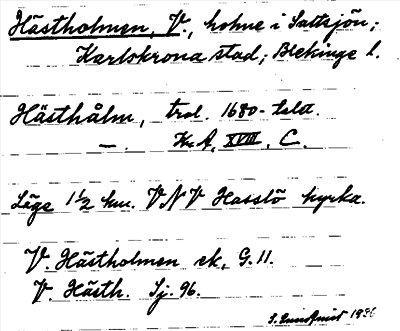 Hästholmen, V., holme i Saltsjön;
Karlskrona stad; Blekinge l.
Hästhålm, trol. 1680-talet.
— . Kr.A, XVIII, C.
Läge 1½ km. VNV Hasslö kyrka.
V. Hästholmen ek, G.11.
V. Hästh. Sj. 96.
S. Lundquist